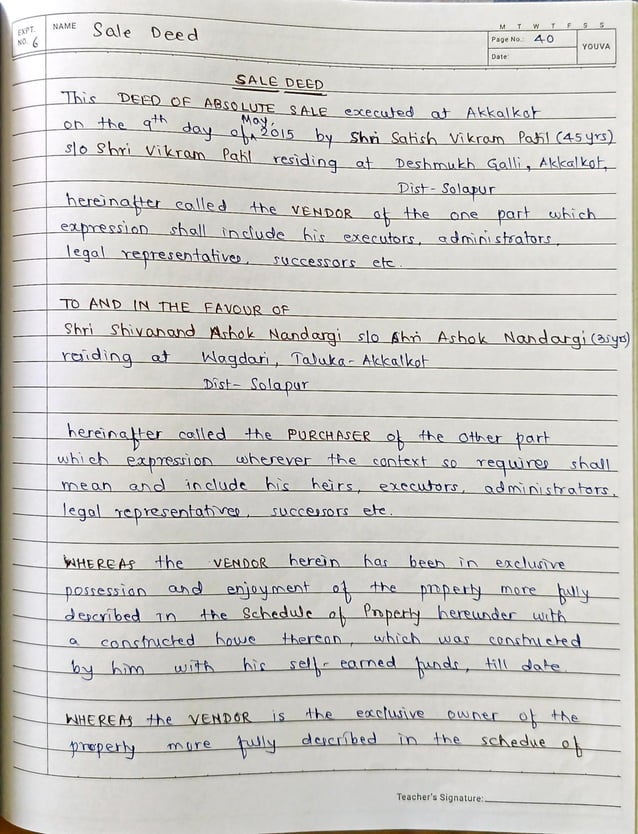 EXPT. NO. 6
NAME Sale Deed
M T W T F S S
Page No.: 40
Date:
YOUVA
SALE DEED
This DEED OF ABSOLUTE SALE executed at Akkalkot
on the 9th day of May, 2015 by Shri Satish Vikram Patil (45 yrs)
s/o Shri Vikram Patil residing at Deshmukh Galli, Akkalkot,
Dist - Solapur
hereinafter called the VENDOR of the one part which
expression shall include his executors, administrators,
legal representatives, successors etc.
TO AND IN THE FAVOUR OF
Shri Shivanand Ashok Nandargi s/o Shri Ashok Nandargi (35yrs)
residing at Wagdari, Taluka - Akkalkot
Dist - Solapur
hereinafter called the PURCHASER of the other part
which expression wherever the context so requires shall
mean and include his heirs, executors, administrators,
legal representatives, successors etc.
WHEREAS the VENDOR herein has been in exclusive
possession and enjoyment of the property more fully
described in the Schedule of Property hereunder with
a constructed house thereon, which was constructed
by him with his self-earned funds, till date.
WHEREAS the VENDOR is the exclusive owner of the
property more fully described in the schedue of
Teacher's Signature: